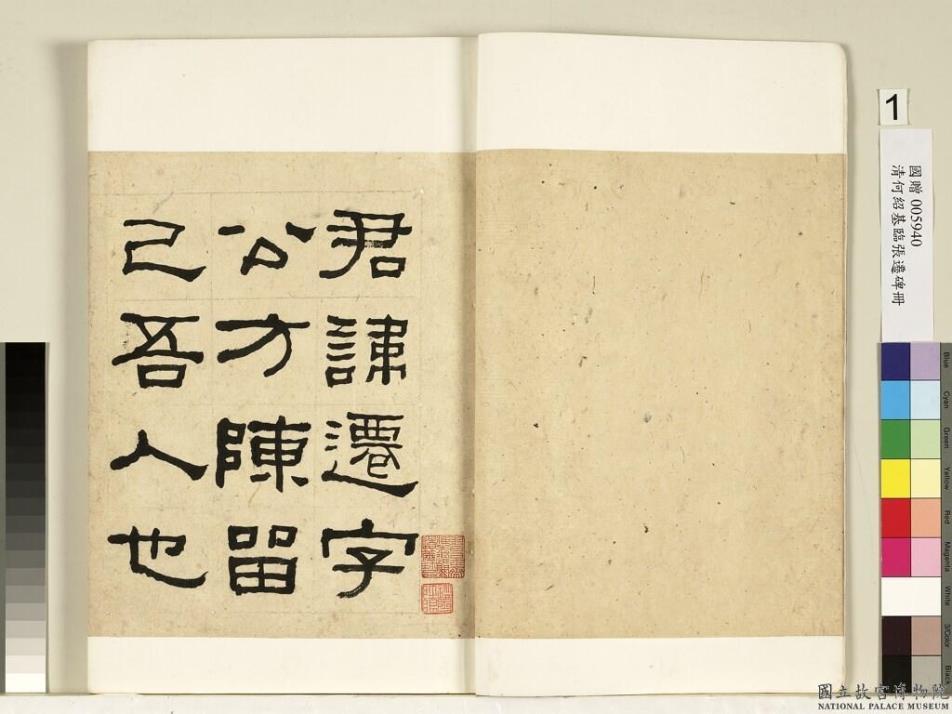 君諱遷字
公方陳留
己吾人也
1
國贈 005940
清何紹基臨張遷碑冊
Blue
Cyan
Green
Yellow
Red
Magenta
White
3/Color
Black
國立故宮博物院
NATIONAL PALACE MUSEUM